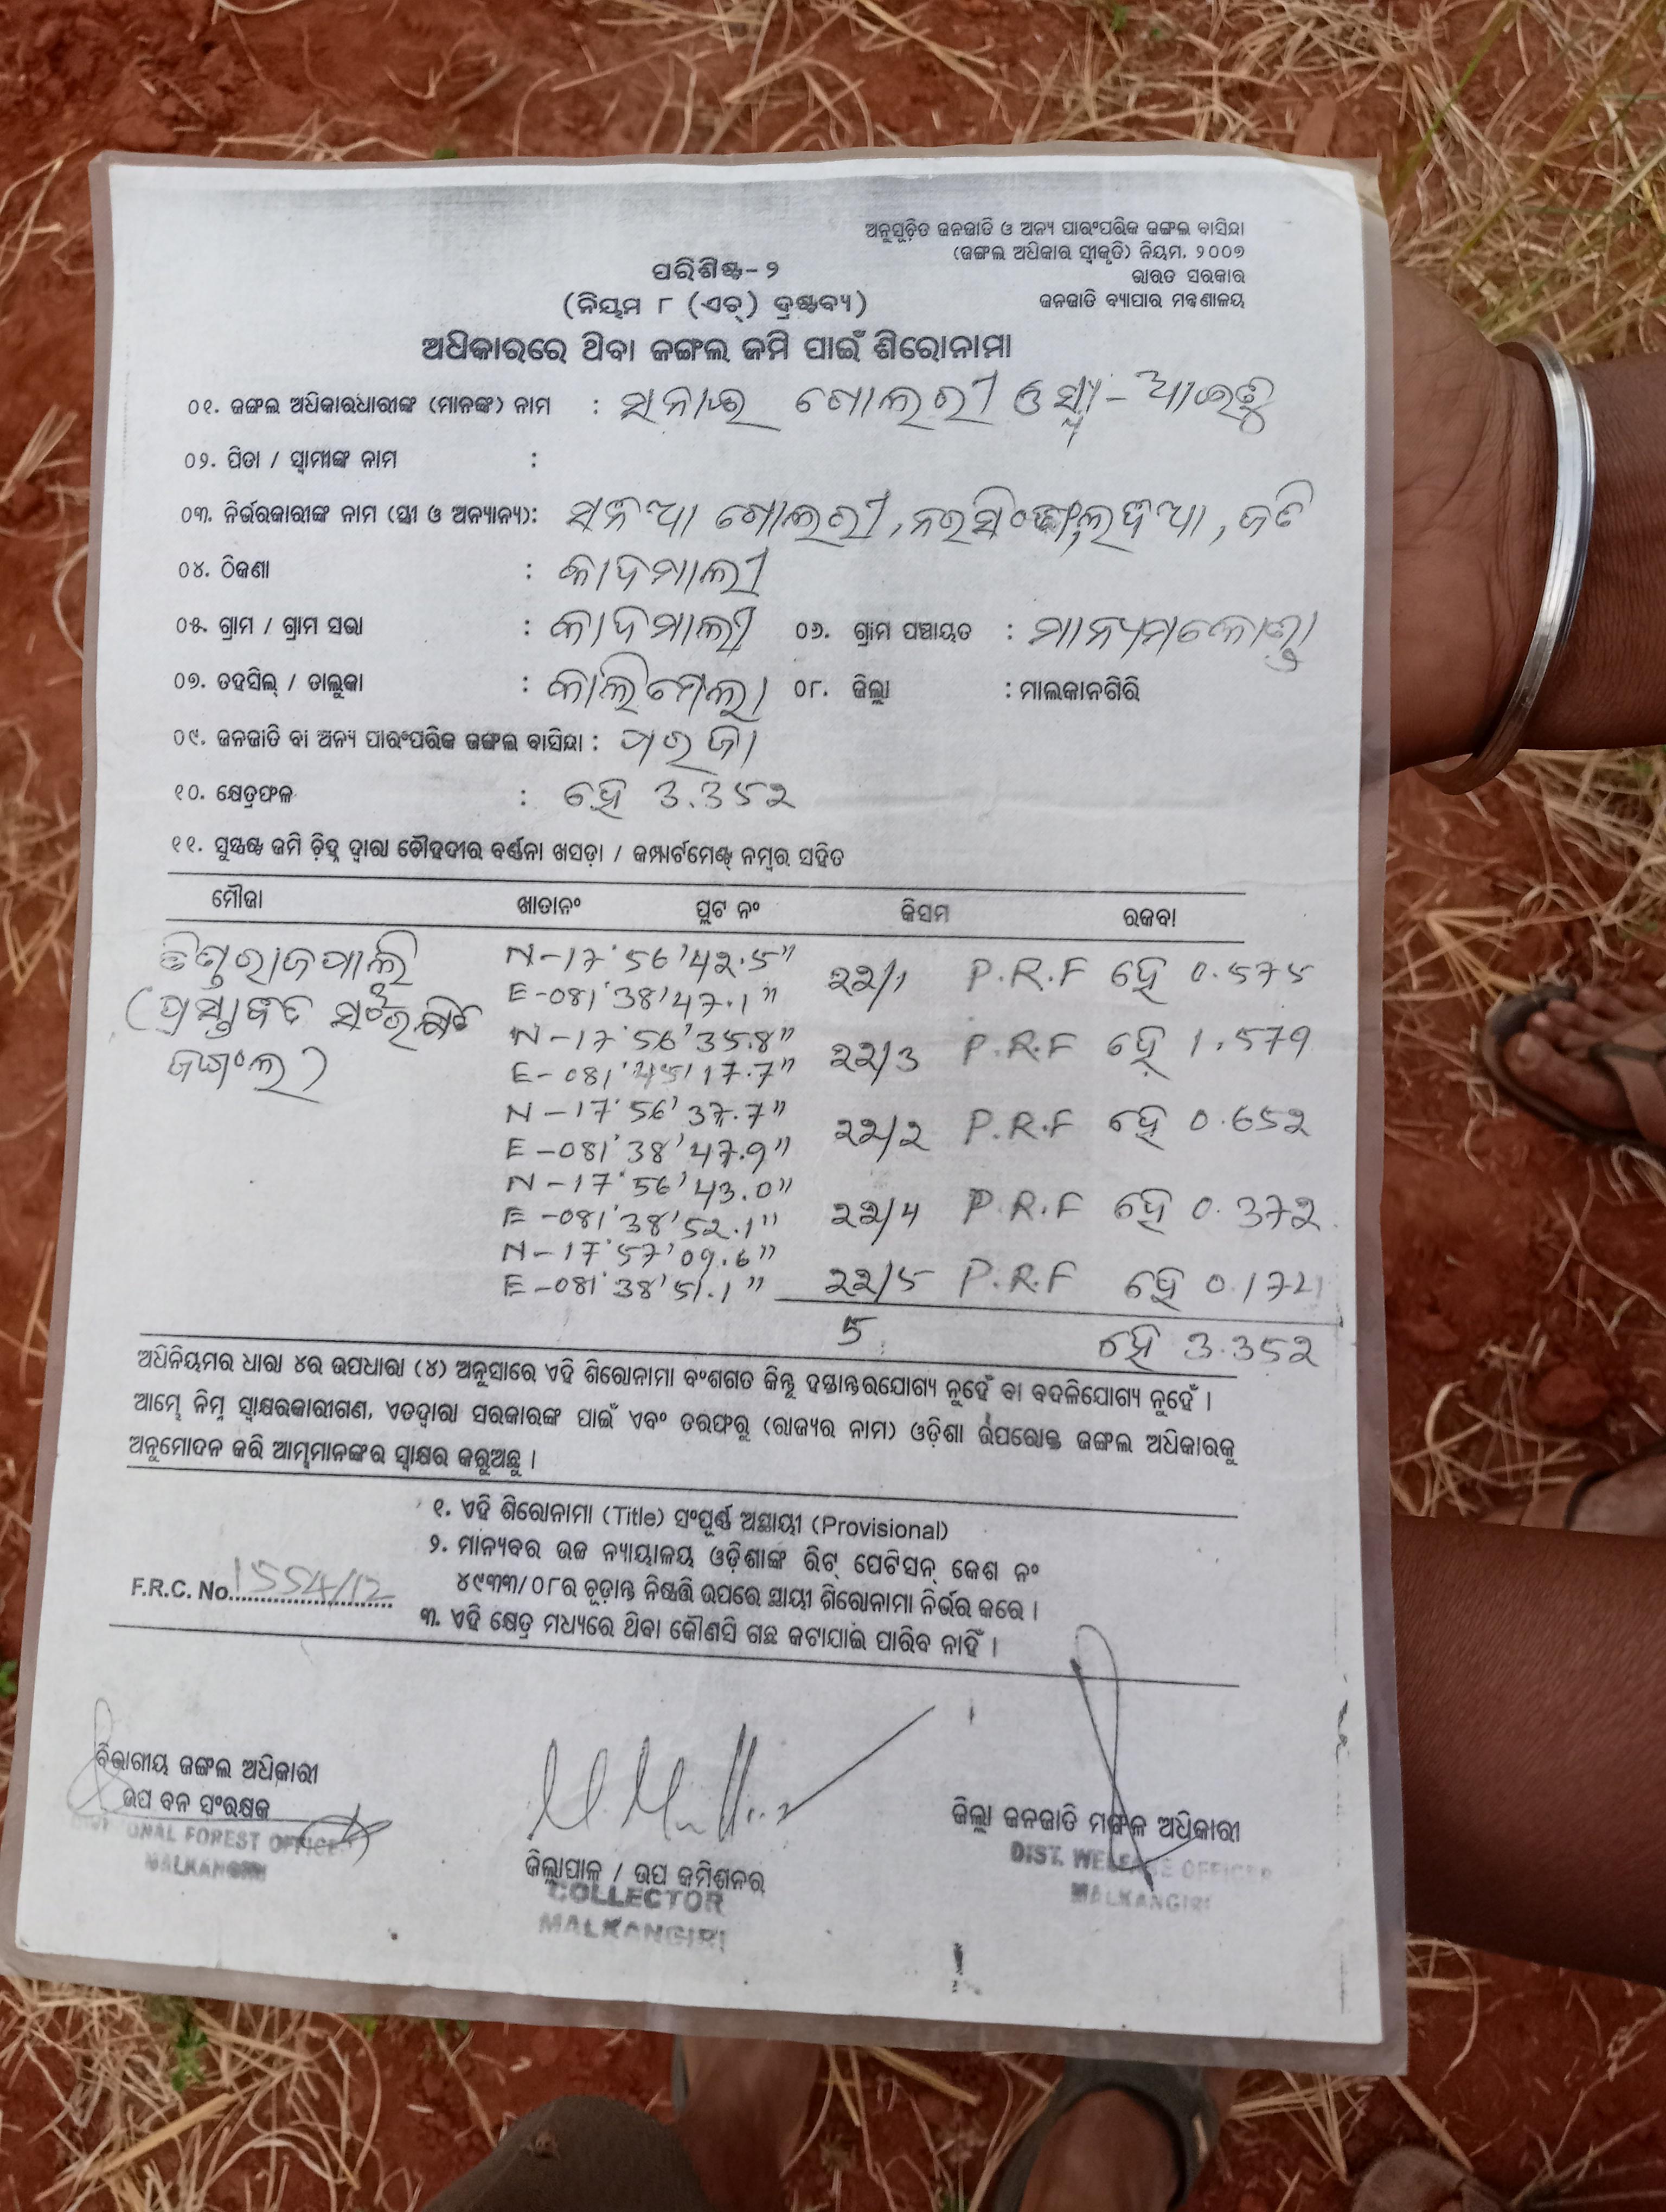 ଅନୁସୂଚିତ ଜନଜାତି ଓ ଅନ୍ୟ ପାରଂପରିକ ଜଙ୍ଗଲ ବାସିନ୍ଦା
(ଜଙ୍ଗଲ ଅଧିକାର ସ୍ୱୀକୃତି) ନିୟମ, ୨୦୦୭
ଭାରତ ସରକାର
ଜନଜାତି ବ୍ୟାପାର ମନ୍ତ୍ରଣାଳୟ
ପରିଶିଷ୍ଟ-୨
(ନିୟମ ୮ (ଏଚ୍) ଦ୍ରଷ୍ଟବ୍ୟ)
ଅଧିକାରରେ ଥିବା ଜଙ୍ଗଲ ଜମି ପାଇଁ ଶିରୋନାମା
୦୧. ଜଙ୍ଗଲ ଅଧିକାରଧାରୀଙ୍କ (ମାନଙ୍କ) ନାମ : ଗୋଲରୀ ଓ ସ୍ତ୍ରୀ-
୦୨. ପିତା / ସ୍ୱାମୀଙ୍କ ନାମ :
୦୩. ନିର୍ଭରକାରୀଙ୍କ ନାମ (ସ୍ତ୍ରୀ ଓ ଅନ୍ୟାନ୍ୟ): ଗୋଲରୀ,
୦୪. ଠିକଣା : କାଦମାଲୀ
୦୫. ଗ୍ରାମ / ଗ୍ରାମ ସଭା : କାଦମାଲୀ ୦୬. ଗ୍ରାମ ପଞ୍ଚାୟତ : ମାନ୍ୟମକୋଣ୍ଡା
୦୭. ତହସିଲ୍ / ତାଲୁକା : କାଲିମେଲା ୦୮. ଜିଲ୍ଲା : ମାଲକାନଗିରି
୦୯. ଜନଜାତି ବା ଅନ୍ୟ ପାରଂପରିକ ଜଙ୍ଗଲ ବାସିନ୍ଦା : ପରଜା
୧୦. କ୍ଷେତ୍ରଫଳ : ହେ 3.352
୧୧. ସୁସ୍ପଷ୍ଟ ଜମି ଚିହ୍ନ ଦ୍ୱାରା ଚୌହଦୀର ବର୍ଣ୍ଣନା ଖସଡ଼ା / କମ୍ପାର୍ଟମେଣ୍ଟ୍ ନମ୍ବର ସହିତ
ମୌଜା ଖାତାନଂ ପ୍ଲଟ ନଂ କିସମ ରକବା
N-17°56'42.5"
E-081°38'47.1" 22/1 P.R.F ହେ 0.575
N-17°56'35.8"
E-081°45'17.7" 22/3 P.R.F ହେ 1.579
N-17°56'37.7"
E-081°38'47.9" 22/2 P.R.F ହେ 0.652
N-17°56'43.0"
E-081°38'52.1" 22/4 P.R.F ହେ 0.372
N-17°57'09.6"
E-081°38'51.1" 22/5 P.R.F ହେ 0.174
5 ହେ 3.352
ଅଧିନିୟମର ଧାରା ୪ର ଉପଧାରା (୪) ଅନୁସାରେ ଏହି ଶିରୋନାମା ବଂଶଗତ କିନ୍ତୁ ହସ୍ତାନ୍ତରଯୋଗ୍ୟ ନୁହେଁ ବା ବଦଳିଯୋଗ୍ୟ ନୁହେଁ ।
ଆମ୍ଭେ ନିମ୍ନ ସ୍ୱାକ୍ଷରକାରୀଗଣ, ଏତଦ୍ୱାରା ସରକାରଙ୍କ ପାଇଁ ଏବଂ ତରଫରୁ (ରାଜ୍ୟର ନାମ) ଓଡ଼ିଶା ଉପରୋକ୍ତ ଜଙ୍ଗଲ ଅଧିକାରକୁ
ଅନୁମୋଦନ କରି ଆମ୍ଭମାନଙ୍କର ସ୍ୱାକ୍ଷର କରୁଅଛୁ ।
୧. ଏହି ଶିରୋନାମା (Title) ସଂପୂର୍ଣ୍ଣ ଅସ୍ଥାୟୀ (Provisional)
୨. ମାନ୍ୟବର ଉଚ୍ଚ ନ୍ୟାୟାଳୟ ଓଡ଼ିଶାଙ୍କ ରିଟ୍ ପେଟିସନ୍ କେଶ ନଂ
୪୯୩୩/୦୮ର ଚୂଡ଼ାନ୍ତ ନିଷ୍ପତ୍ତି ଉପରେ ସ୍ଥାୟୀ ଶିରୋନାମା ନିର୍ଭର କରେ ।
F.R.C. No. 1554/12
୩. ଏହି କ୍ଷେତ୍ର ମଧ୍ୟରେ ଥିବା କୌଣସି ଗଛ କଟାଯାଇ ପାରିବ ନାହିଁ ।
ବିଭାଗୀୟ ଜଙ୍ଗଲ ଅଧିକାରୀ
ଉପ ବନ ସଂରକ୍ଷକ
DIVISIONAL FOREST OFFICER
MALKANGIRI
ଜିଲ୍ଲାପାଳ / ଉପ କମିଶନର୍
COLLECTOR
MALKANGIRI
ଜିଲ୍ଲା ଜନଜାତି ମଙ୍ଗଳ ଅଧିକାରୀ
DIST. WELFARE OFFICER
MALKANGIRI